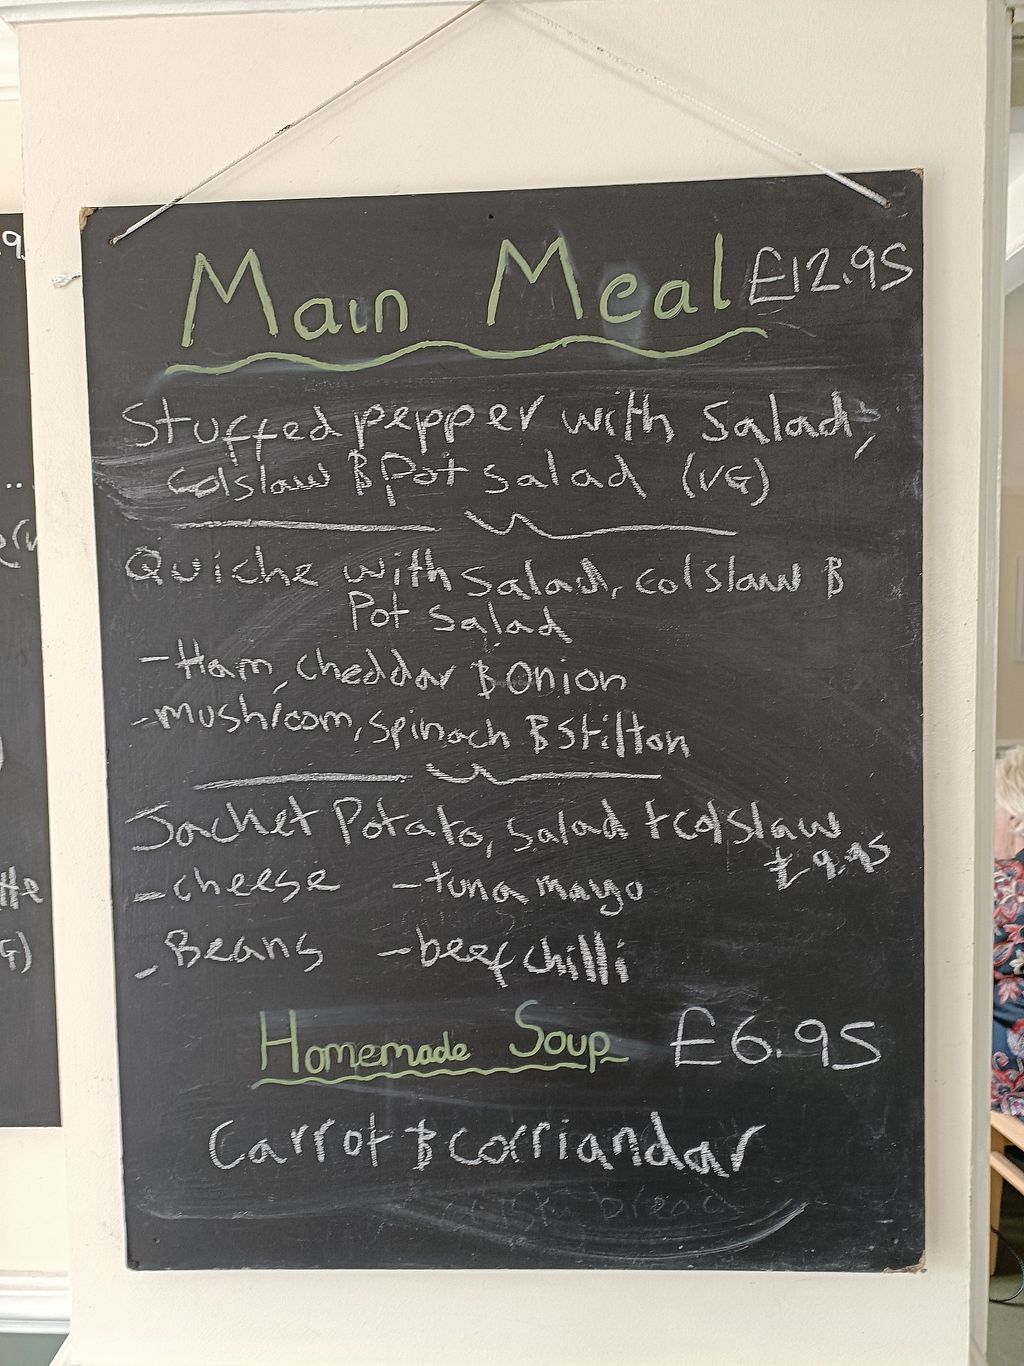 Main Meal £12.95
Stuffed pepper with Salad,
colslaw & Pot salad (VG)
Quiche with salad, colslaw &
Pot salad
- Ham, cheddar & Onion
- mushroom, spinach & Stilton
Jacket Potato, salad + colslaw
£9.95
- cheese - tuna mayo
- Beans - beef chilli
Homemade Soup £6.95
Carrot & corriandar
bread